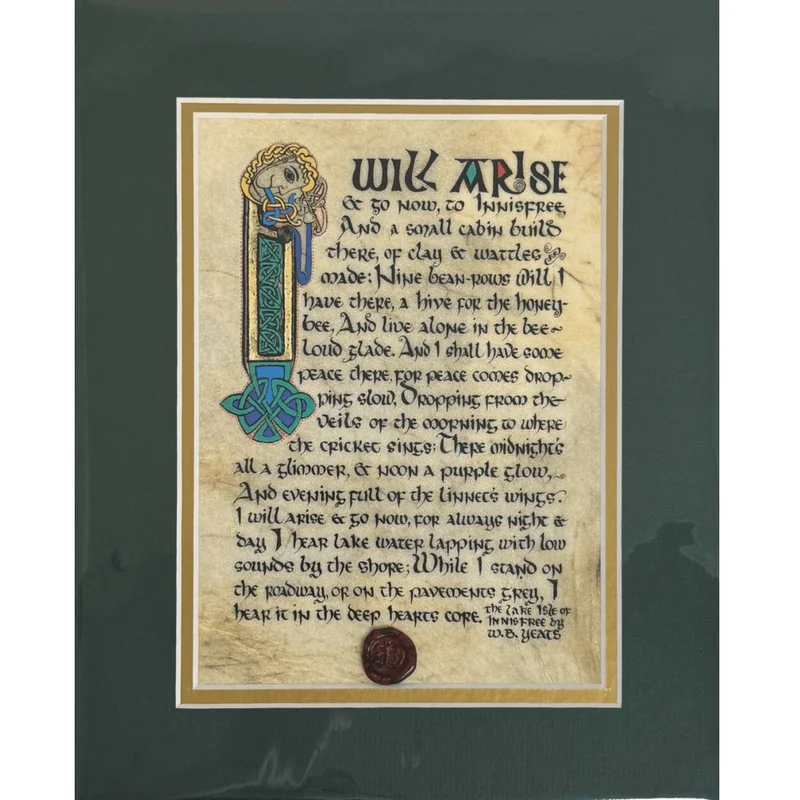 I WILL ARISE
& go now, to Innisfree,
And a small cabin build
there, of clay & wattles
made: Nine bean-rows will I
have there, a hive for the honey-
bee, And live alone in the bee~
loud glade. And I shall have some
peace there, for peace comes drop~
ping slow, Dropping from the
veils of the morning to where
the cricket sings: There midnight's
all a glimmer, & noon a purple glow,
And evening full of the linnet's wings.
I will arise & go now, for always night &
day I hear lake water lapping with low
sounds by the shore; While I stand on
the roadway, or on the pavements grey, I
hear it in the deep hearts core.
the Lake Isle of
Innisfree by
W.B. Yeats